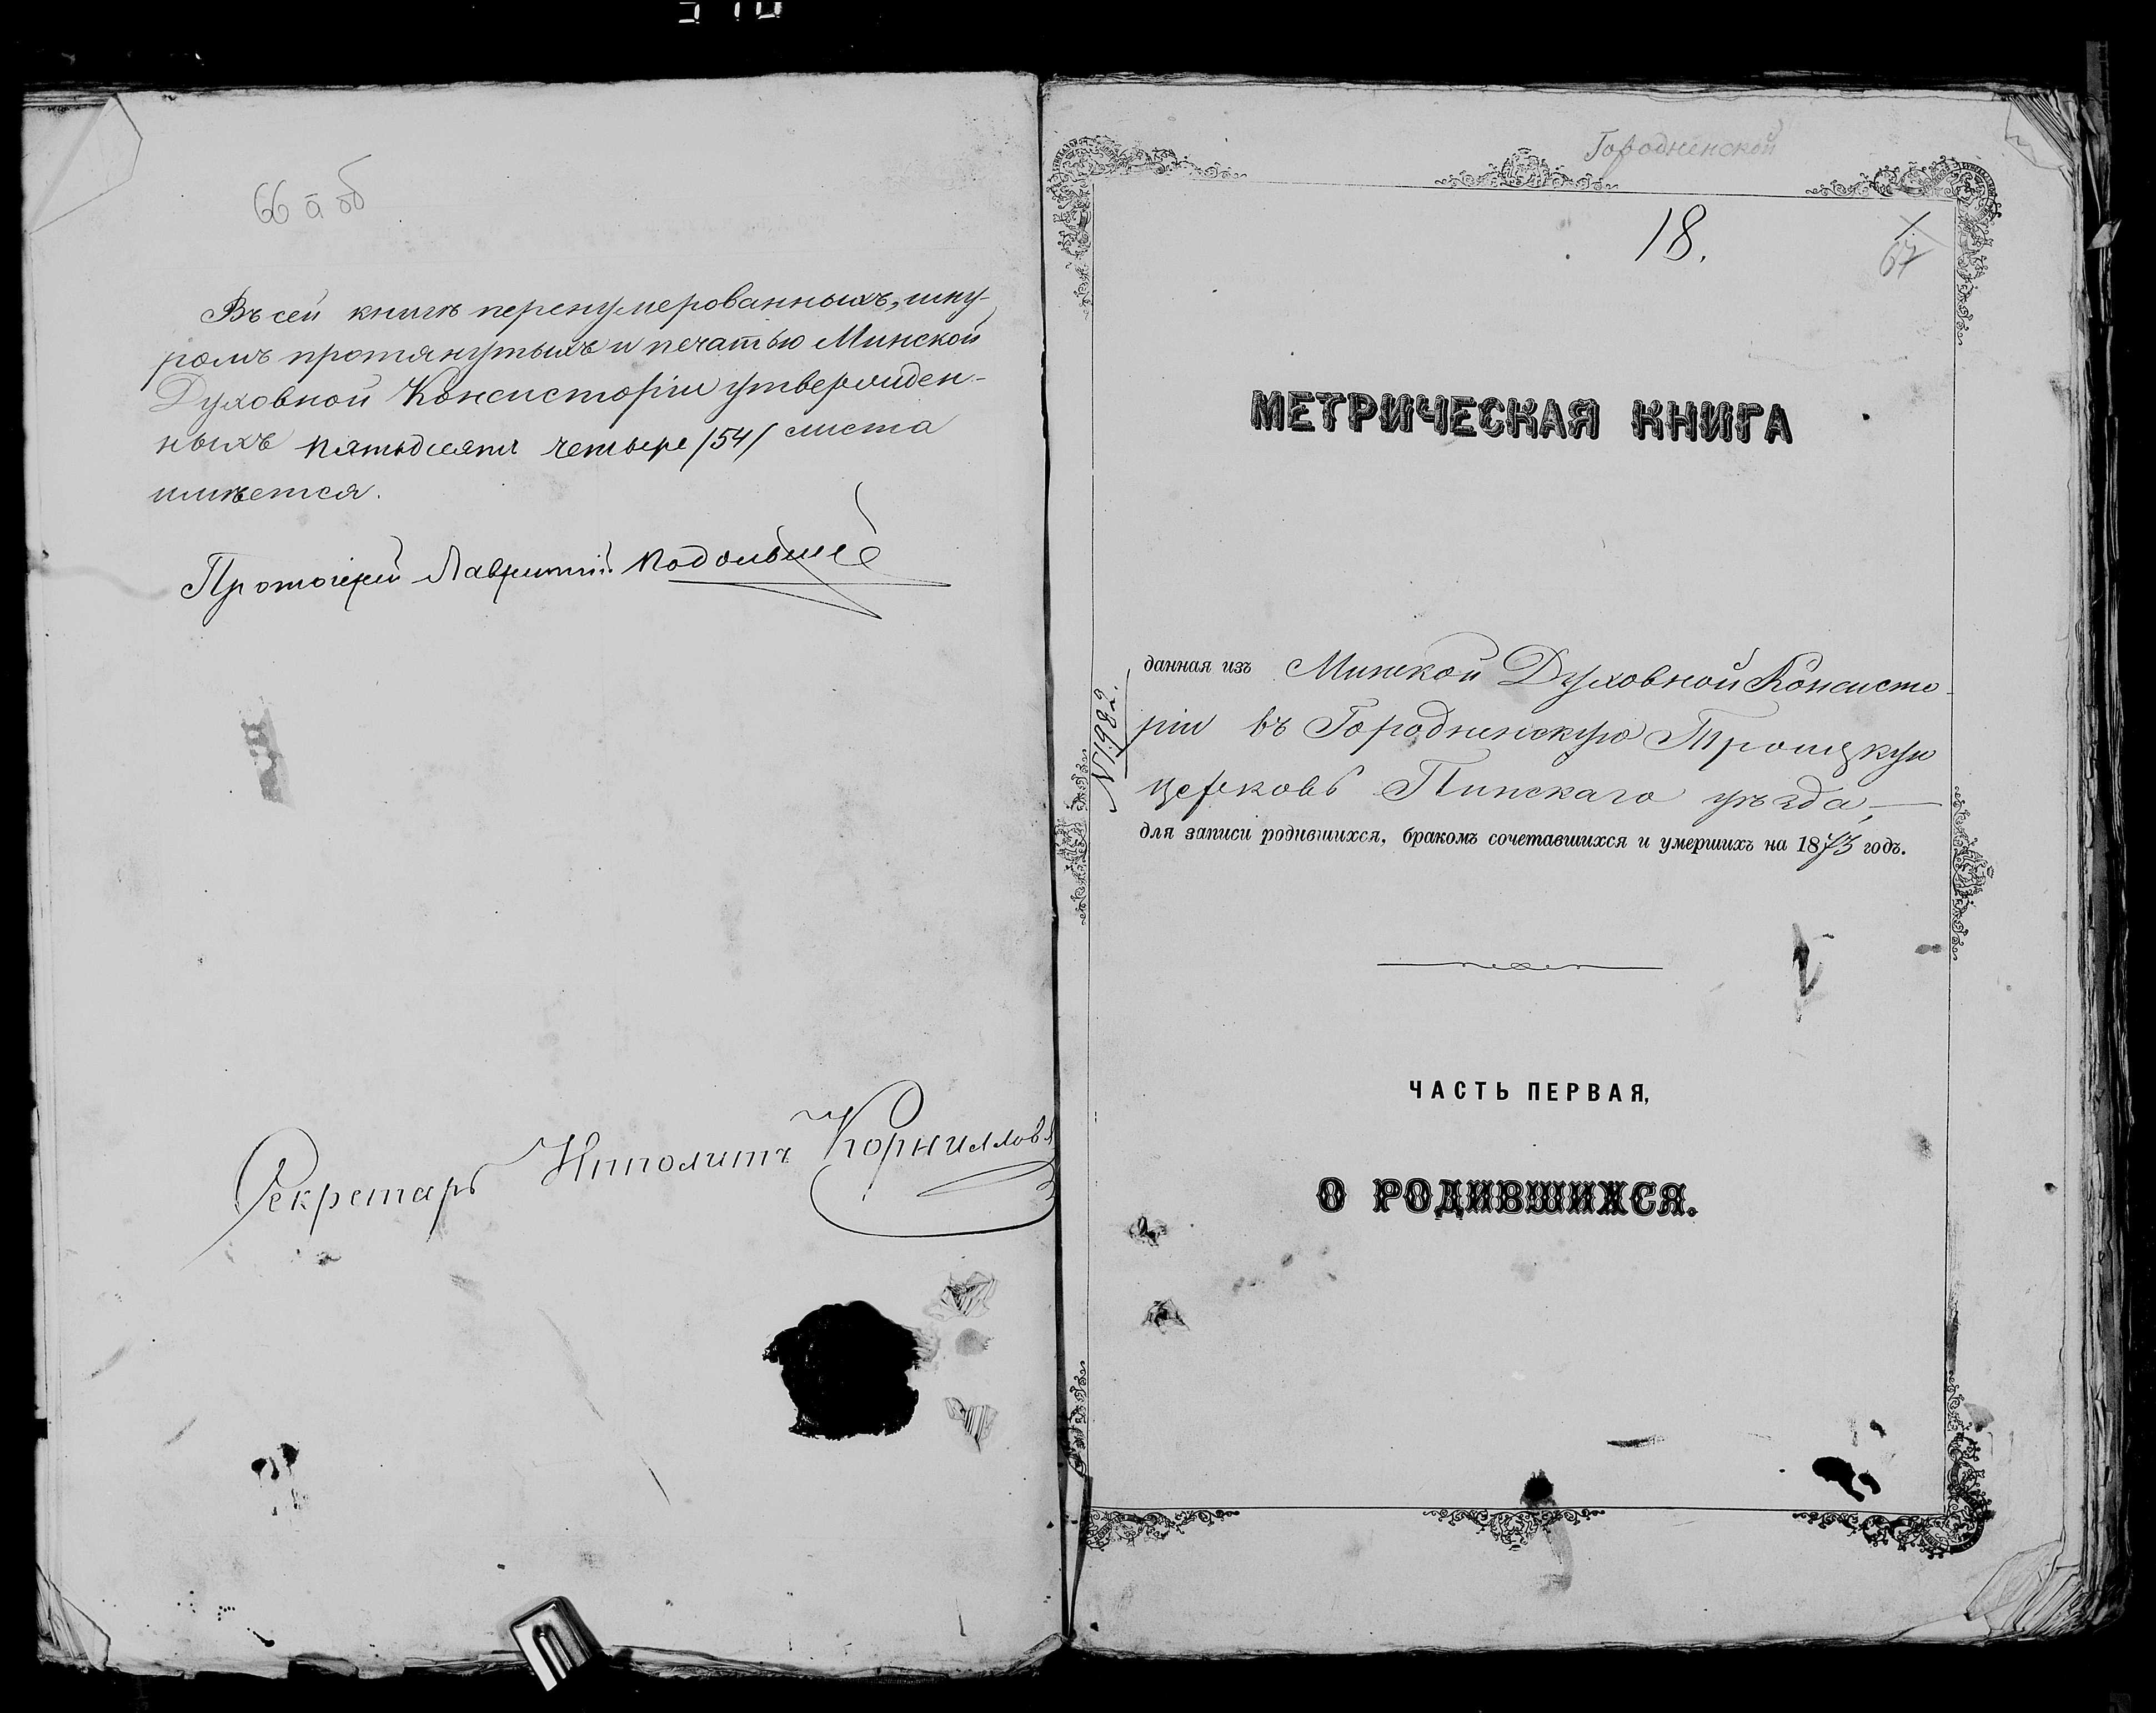 66 а об
Въ сей книгѣ перенумерованныхъ, шну-
ромъ протянутыхъ и печатью Минской
Духовной Консисторіи утвержден-
ныхъ пятьдесятъ четыре /54/ листа
имѣется.
Протоіерей Лаврентій
Секретарь Ипполитъ Корниловъ
Городненской
18.
1
67
МЕТРИЧЕСКАЯ КНИГА
№ 1982.
данная изъ Минской Духовной Консисто-
ріи въ Городненскую Троицкую
церковь Пинскаго уѣзда,
для записи родившихся, бракомъ сочетавшихся и умершихъ на 1873 годъ.
ЧАСТЬ ПЕРВАЯ,
О РОДИВШИХСЯ.